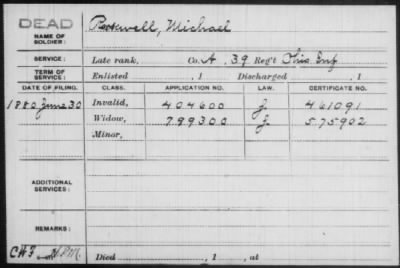 DEAD
NAME OF SOLDIER:
Michael
SERVICE: Late rank, Co. A, 39 Reg't Ohio Inf
TERM OF SERVICE: Enlisted , 1 Discharged , 1
DATE OF FILING. CLASS. APPLICATION NO. LAW. CERTIFICATE NO.
1880 June 30 Invalid, 404600 J 461091
Widow, 799300 J 575902
Minor,
ADDITIONAL SERVICES:
REMARKS:
Died , 1 , at